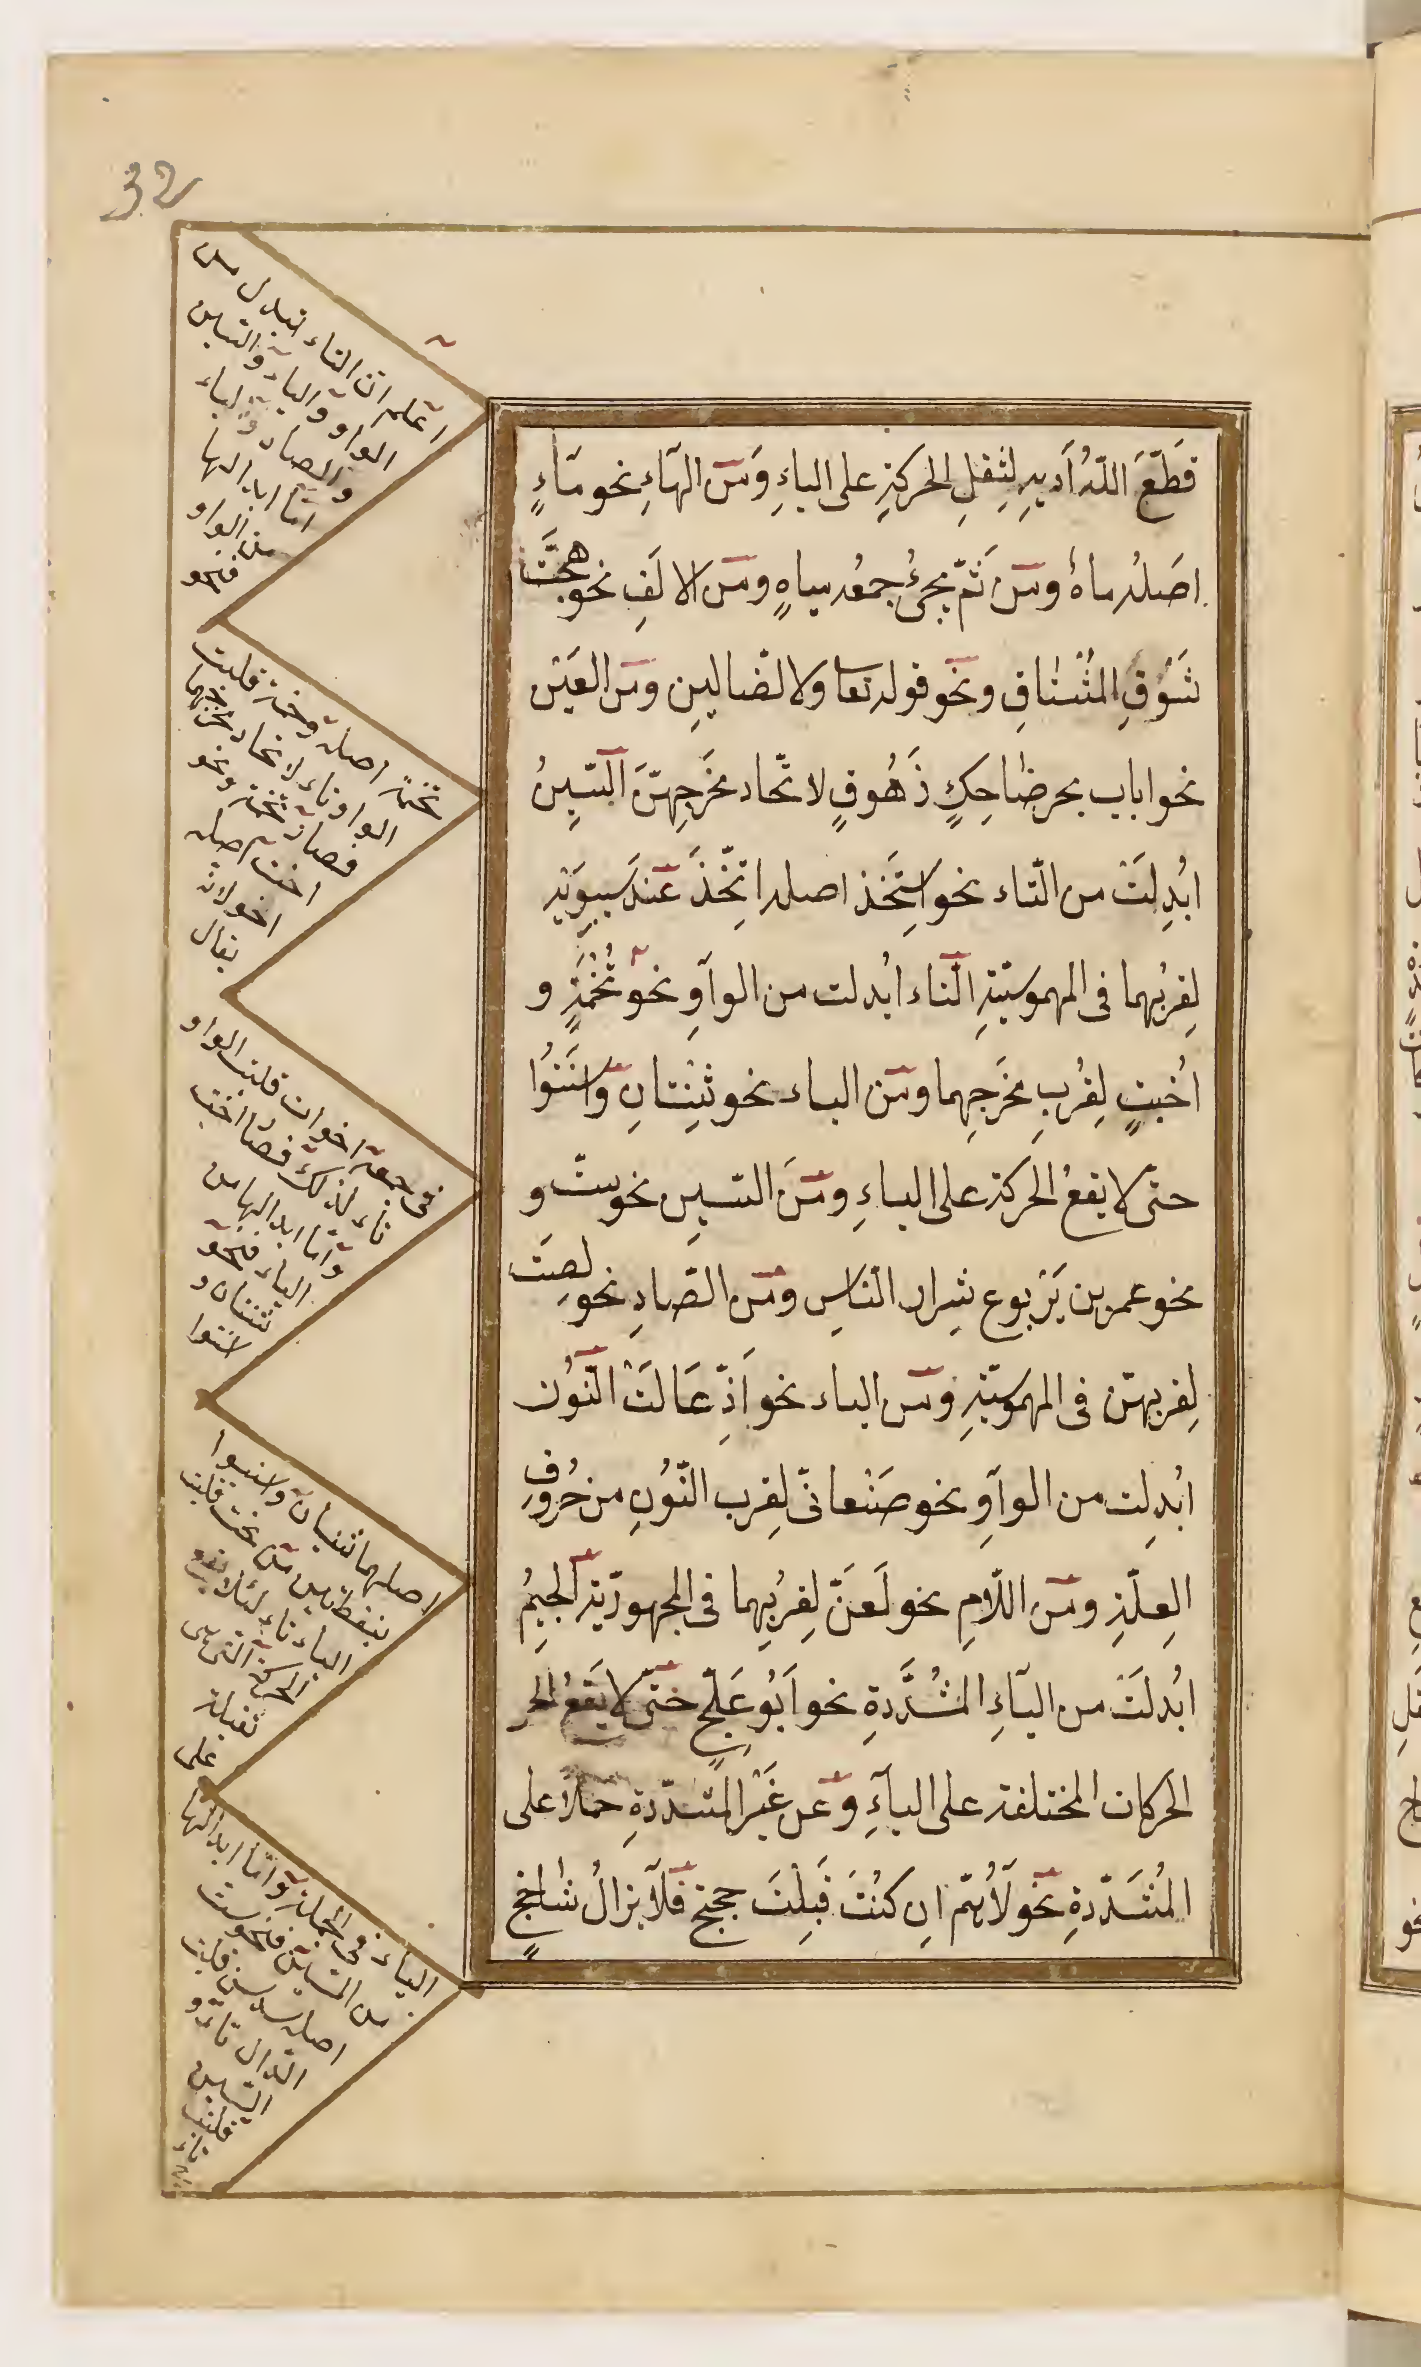 32
قَطَّعَ اللّهُ اَدیهِ لِثِقلِ الحرکةِ علی الیاءِ وَمن الهآءِ نحو مَآءٍ
اصَلهُ ماهٌ ومن ثَمّ یجیُ جمعُه میاهٍ ومن الالَفِ نحو هیّجَت
شَوْقِ المُشتٰاقِ ونحو قوله تعا ولا الضالین ومن العَیْن
نحو اباب بحر ضٰاحِكٍ ذَهُوقٍ لاتّحاد مَخَرجِهنّ السّینُ
ابُدِلَتْ من التّاء نحو استَخَذ اصله اتّخَذَ عند سیبویه
لِقربُهما فی المهموسیّةِ التّاء ابُدلت من الوآوِ نحو تُخْمَةٍ و
اُختٍ لِقُربِ مخَرجِهما ومن الیاء نحو ثِنتانِ واسْنَتُوا
حتّی لا یقعُ الحرکة علی الیاءِ ومنَ السّینِ نحو ستّ و
نحو عمرو بن یَرْبوع شِرار النّاتِ ومن الصّادِ نحو لصِت
لِقربهنّ فی المهموسیّةِ ومن الباء نحو اَذّعَالَتْ النّوُن
ابُدِلت من الوآوِ نحو صَنْعانیّ لِقرب النّوُنِ من حُروُفِ
العِلّةِ ومن اللّامِ نحو لَعَنّ لِقرُبِهِما فی المجهوریّة الجیِمُ
ابُدلَتْ من الیآءِ المشُدَّدةِ نحو اَبُو عَلِجّ حتّی لا یَقعُ الحر
الحرکات المختلفة علی الیآءِ و من غَیْر المشدّدةِ حَملاً علی
المُشَدّدةِ نحو لاهُمّ انِ کنُتَ قَبِلتَ حجتج فَلا یزالُ شٰاحِجٌ
اعلم ان التاء تبدل من
الواو والیاء والسین
والصاد والباء
امّا ابدالها
من الواو
فنحو
تخمة اصله وخمة قلبت
الواو تاء لاتحاد مخرجهما
فصار تخمة ونحو
اخت اصله
اخو لانه
یقال
فی جمعه اخوات قلبت الواو
تاء لذلك فصار اخت
وامّا ابدالها من
الیاء فنحو
ثنتان و
اسنتوا
اصلهما ثنیان واسنیوا
بنقطتین من تحت قلبت
الیاء تاء لئلا یقع
الحرکة التی هی
ثقیلة
علی
الیاء فی الجملة وامّا ابدالها
من السین فنحو ست
اصله سدس قلبت
الدال تاء و
السین
قلبت
تاء